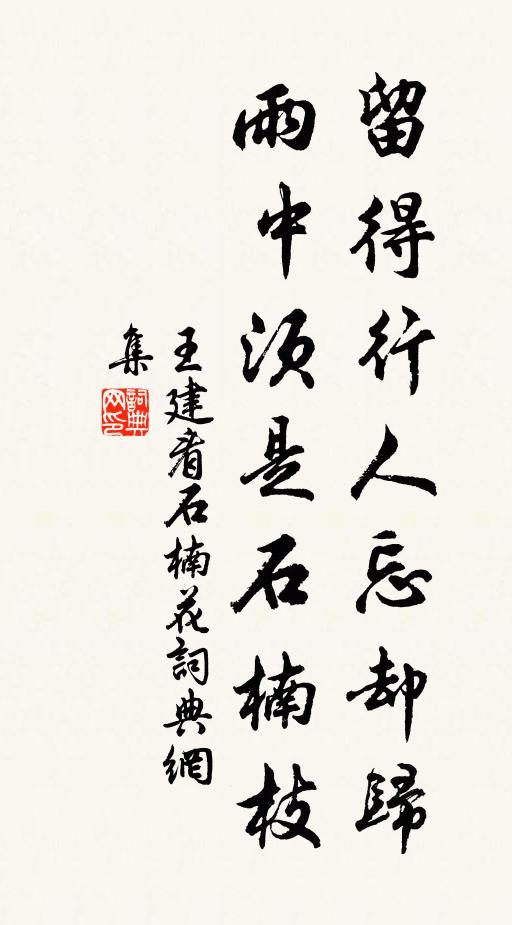 留得行人忘却歸
雨中須是石楠枝
王建看石楠花詞典網
集
詞典網印